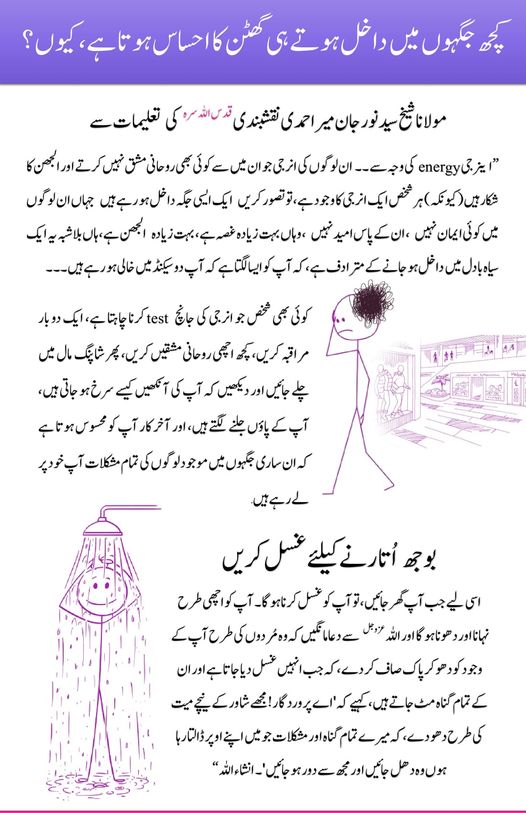 کچھ جگہوں میں داخل ہوتے ہی گھٹن کا احساس ہوتا ہے، کیوں؟
مولانا شیخ سید نور جان میر احمدی نقشبندی قدس اللہ سرہ کی تعلیمات سے
”اینرجی energy کی وجہ سے۔۔ ان لوگوں کی انرجی جو ان میں سے کوئی بھی روحانی مشق نہیں کرتے اور الجھن کا
شکار ہیں (کیونکہ) ہر شخص ایک انرجی کا وجود ہے، تو تصور کریں ایک ایسی جگہ داخل ہو رہے ہیں جہاں ان لوگوں
میں کوئی ایمان نہیں ، ان کے پاس امید نہیں ، وہاں بہت زیادہ غصہ ہے، بہت زیادہ الجھن ہے، ہاں بلاشبہ یہ ایک
سیاہ بادل میں داخل ہو جانے کے مترادف ہے، کہ آپ کو ایسا لگتا ہے کہ آپ دو سیکنڈ میں خالی ہو رہے ہیں۔۔۔
کوئی بھی شخص جو انرجی کی جانچ test کرنا چاہتا ہے، ایک دو بار
مراقبہ کریں، کچھ اچھی روحانی مشقیں کریں، پھر شاپنگ مال میں
چلے جائیں اور دیکھیں کہ آپ کی آنکھیں کیسے سرخ ہو جاتی ہیں،
آپ کے پاؤں جلنے لگتے ہیں، اور آخر کار آپ کو محسوس ہوتا ہے
کہ ان ساری جگہوں میں موجود لوگوں کی تمام مشکلات آپ خود پر
لے رہے ہیں.
بوجھ اُتارنے کیلئے غسل کریں
اسی لیے جب آپ گھر جائیں، تو آپ کو غسل کرنا ہو گا۔ آپ کو اچھی طرح
نہانا اور دھونا ہو گا اور اللہ عزوجل سے دعا مانگیں کہ وہ مُردوں کی طرح آپ کے
وجود کو دھو کر پاک صاف کر دے، کہ جب انہیں غسل دیا جاتا ہے اور ان
کے تمام گناہ مٹ جاتے ہیں، کہیے کہ 'اے پروردگار! مجھے شاور کے نیچے میت
کی طرح دھو دے، کہ میرے تمام گناہ اور مشکلات جو میں اپنے اوپر ڈالتا رہا
ہوں وہ دھل جائیں اور مجھ سے دور ہو جائیں'۔ انشاء اللہ“